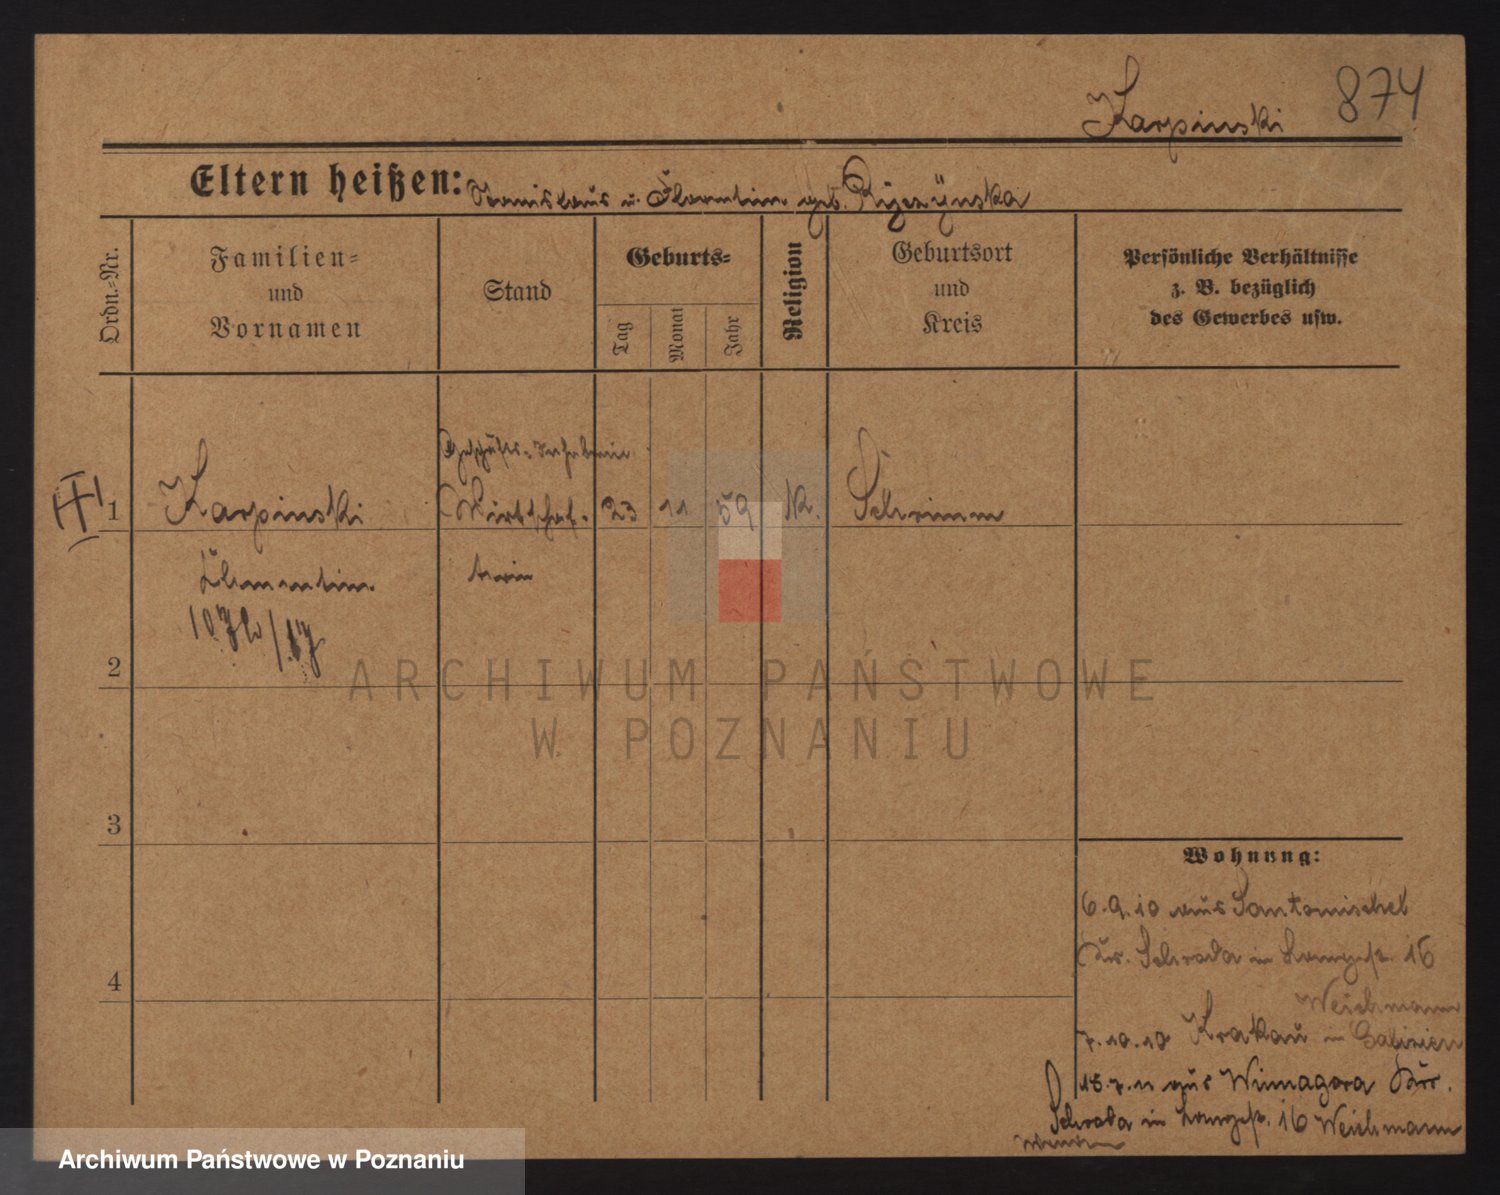 874
Karpinski
Eltern heißen: Stanislaus u. Florentine geb.
Ordn.=Nr.
Familien=
und
Vornamen
Stand
Geburts=
Tag
Monat
Jahr
Religion
Geburtsort
und
Kreis
Persönliche Verhältnisse
z. B. bezüglich
des Gewerbes usw.
1
Karpinski
Wirtschaf-
23
11
59
K.
Schrimm
terin
2
3
4
Wohnung:
6.9.10 aus Santomischel
Kr. Schroda in Langestr. 16
Weichmann
7.10.10 Krakau in Galizien
18.7.11 aus Winnagora Kr.
Schroda in Langestr. 16 Weichmann
ARCHIWUM PAŃSTWOWE
W POZNANIU
Archiwum Państwowe w Poznaniu